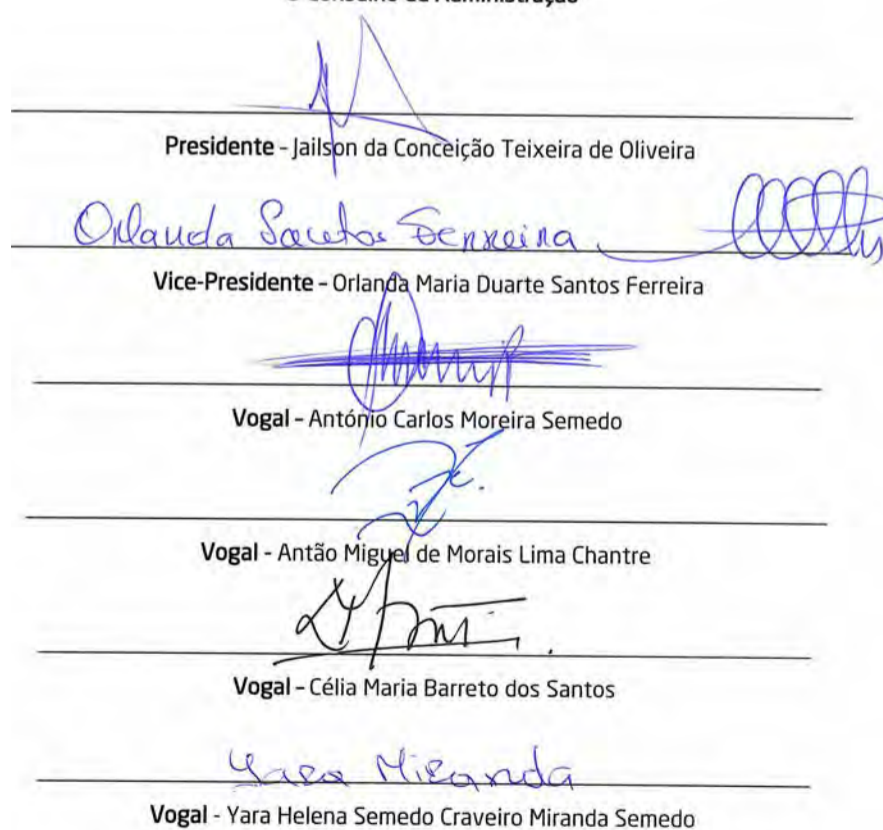 Presidente - Jailson da Conceição Teixeira de Oliveira
Orlanda Santos Ferreira
Vice-Presidente - Orlanda Maria Duarte Santos Ferreira
Vogal - António Carlos Moreira Semedo
Vogal - Antão Miguel de Morais Lima Chantre
Vogal - Célia Maria Barreto dos Santos
Yara Miranda
Vogal - Yara Helena Semedo Craveiro Miranda Semedo